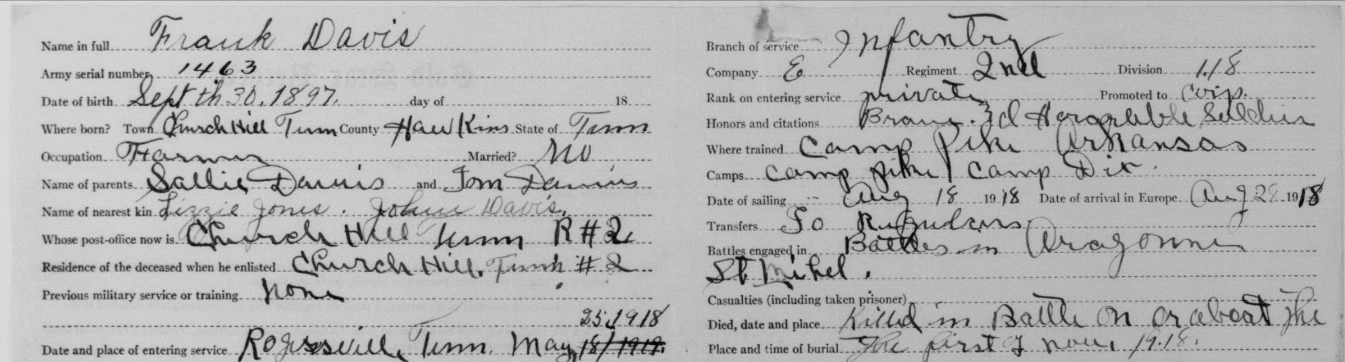 Name in full Frank Davis
Army serial number 1463
Date of birth Sept th 30. 1897. day of 18
Where born? Town Church Hill Tenn County Hawkins State of Tenn
Occupation Farmer Married? No
Name of parents Sallie Davis and Tom Davis
Name of nearest kin Lizzie Jones. Johnie Davis.
Whose post-office now is Church Hill Tenn R#2
Residence of the deceased when he enlisted Church Hill, Tenn #2
Previous military service or training none
25, 1918
Date and place of entering service Rogersville, Tenn. May 18/1919.
Branch of service Infantry
Company E Regiment 2nd Division 118
Rank on entering service private Promoted to Corp.
Honors and citations Brave. & Honorable Soldier
Where trained Camp Pike Arkansas
Camps Camp Pike Camp Dix
Date of sailing Aug 18 1918 Date of arrival in Europe Aug 28 1918
Transfers To Regulars
Battles engaged in Battles in Aragonne
St Mihel.
Casualties (including taken prisoner)
Died, date and place Killed in Battle on or about the
Place and time of burial The first of nov. 1918.